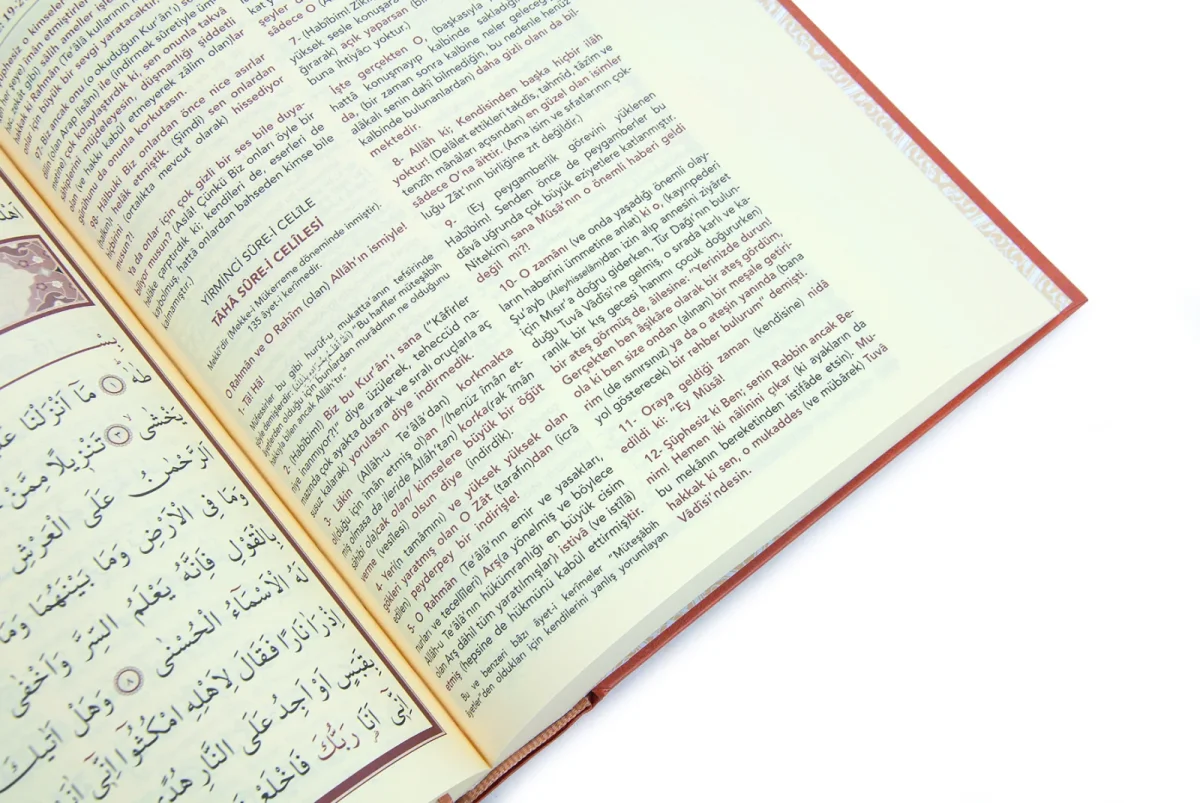 طٰهٰ ۚ ١ مَٓا اَنْزَلْنَا
يَخْشٰىۙ ٣ تَنْز۪يلًا مِمَّنْ
اَلرَّحْمٰنُ عَلَى الْعَرْشِ
وَمَا فِي الْاَرْضِ وَمَا بَيْنَهُمَا وَمَا
بِالْقَوْلِ فَاِنَّهُ يَعْلَمُ السِّرَّ وَاَخْفٰى
لَهُ الْاَسْمَٓاءُ الْحُسْنٰى ٨ وَهَلْ اَتٰيكَ
اِذْ رَاٰ نَارًا فَقَالَ لِاَهْلِهِ امْكُثُٓوا اِنّ۪ٓي اٰنَسْتُ
بِقَبَسٍ اَوْ اَجِدُ عَلَى النَّارِ هُدًى
اِنّ۪ٓي اَنَا۬ رَبُّكَ فَاخْلَعْ
her şeye) îmân etmişlerdir
hac, zekât gibi) sâlih ameller işle
hakkı ki Rahmân (Te'âlâ kullarının
onlar için büyük bir sevgi yaratacaktır!
97- Biz ancak onu (o okuduğun Kur'ân'ı) senin
dilin (olan Arap lisânı) ile (indirmek sûretiyle üm-
metine) çok kolaylaştırdık ki, sen onunla takvâ
sâhiplerini müjdeleyesin, düşmanlığı şiddetli
olan (ve hakkı kabûl etmeyerek zâlim olan)lar
gürûhunu da onunla korkutasın.
98- Hâlbuki Biz onlardan önce nice asırlar
(halkını) helâk etmiştik. (Şimdi) sen onlardan
hiçbirini (ortalıkta mevcut olarak) hissediyor
musun?!
Ya da onlar için çok gizli bir ses bile duya-
biliyor musun? (Aslâ! Çünkü Biz onları öyle bir
helâke çarptırdık ki; kendileri de, eserleri de
kaybolmuş, hattâ onlardan bahseden kimse bile
kalmamıştır.)
YİRMİNCİ SÛRE-İ CELÎLE
TÂHÂ SÛRE-İ CELÎLESİ
Mekkî'dir (Mekke-i Mükerreme döneminde inmiştir).
135 âyet-i kerîmedir.
O Rahmân ve O Rahîm (olan) Allâh'ın ismiyle!
1- Tâ! Hâ!
Müfessirler bu gibi hurûf-u mukatta'anın tefsîrinde
şöyle demişlerdir: "Bu harfler müteşâbih
âyetlerden olduğu için bunlardan murâdının ne olduğunu
hakkıyla bilen ancak Allâh'tır."
2- (Habîbim!) Biz bu Kur'ân'ı, sana ("Kâfirler
niye inanmıyor?!" diye üzülerek, teheccüd na-
mazında çok ayakta durarak ve sıralı oruçlarla aç
susuz kalarak) yorulasın diye indirmedik.
3- Lâkin (Allâh-u Te'âlâ'dan) korkmakta
olduğu için îmân etmiş ol)an /(henüz îmân et-
miş olmasa da ileride Allâh'tan) korka(rak îmân
sâhibi ola)cak olan/ kimselere büyük bir öğüt
verme (vesîlesi) olsun diye (indirdik).
4- Yeri(n tamâmını) ve yüksek yüksek olan
gökleri yaratmış olan O Zât (tarafın)dan (icrâ
edilen) peyderpey bir indirişle!
5- O Rahmân (Te'âlâ'nın emir ve yasakları,
nurları ve tecellîleri) Arş(a yönelmiş ve böylece
Allâh-u Te'âlâ'nın hükümranlığı en büyük cisim
olan Arş dâhil tüm yaratılmışlar)ı istivâ (ve istîlâ)
etmiş (hepsine de hükmünü kabûl ettirmiş)tir.
Bu ve benzeri bâzı âyet-i kerîmeler "Müteşâbih
âyetler"den oldukları için kendilerini yanlış yorumlayan
sâdece O
7- (Habîbim! Zikir
yüksek sesle konuşarak
ğırarak) açık yaparsan (bil
buna ihtiyâcı yoktur.)
İşte gerçekten O, (başkasıyla
hattâ konuşmayıp kalbinde sakladığı
da, (bir zaman sonra kalbine neler geleceği
alâkalı senin dahî bilmediğin, bu nedenle henüz
kalbinde bulunanlardan) daha gizli olanı da bil-
mektedir.
8- Allâh ki; Kendisinden başka hiçbir ilâh
yoktur! (Delâlet ettikleri takdîs, tahmîd, tâzîm ve
tenzîh mânâları açısından) en güzel olan isimler
sâdece O'na âittir. (Ama isim ve sıfatlarının çok-
luğu Zât'ının birliğine zıt değildir.)
9- (Ey peygamberlik görevini yüklenen
Habîbim! Senden önce de peygamberler bu
dâvâ uğrunda çok büyük eziyetlere katlanmıştır.
Nitekim) sana Mûsâ'nın o önemli haberi geldi
değil mi?!
10- O zamânı (ve onda yaşadığı önemli olay-
ların haberini ümmetine anlat) ki o, (kayınpederi
Şu'ayb (Aleyhisselâm)dan izin alıp annesini ziyâret
için Mısır'a doğru giderken, Tûr Dağı'nın bulun-
duğu Tuvâ Vâdîsi'ne gelmiş, o sırada karlı ve ka-
ranlık bir kış gecesi hanımı çocuk doğururken)
bir ateş görmüş de, âilesine: "Yerinizde durun!
Gerçekten ben âşikâre olarak bir ateş gördüm,
ola ki ben size ondan (alınan) bir meşale getiri-
rim (de ısınırsınız) ya da o ateşin yanında (bana
yol gösterecek) bir rehber bulurum" demişti.
11. Oraya geldiği zaman (kendisine) nidâ
edildi ki: "Ey Mûsâ!
12- Şüphesiz ki Ben; senin Rabbin ancak Be-
nim! Hemen iki nâlinini çıkar (ki ayakların da
bu mekânın bereketinden istifâde etsin). Mu-
hakkak ki sen, o mukaddes (ve mübârek) Tuvâ
Vâdîsi'ndesin.